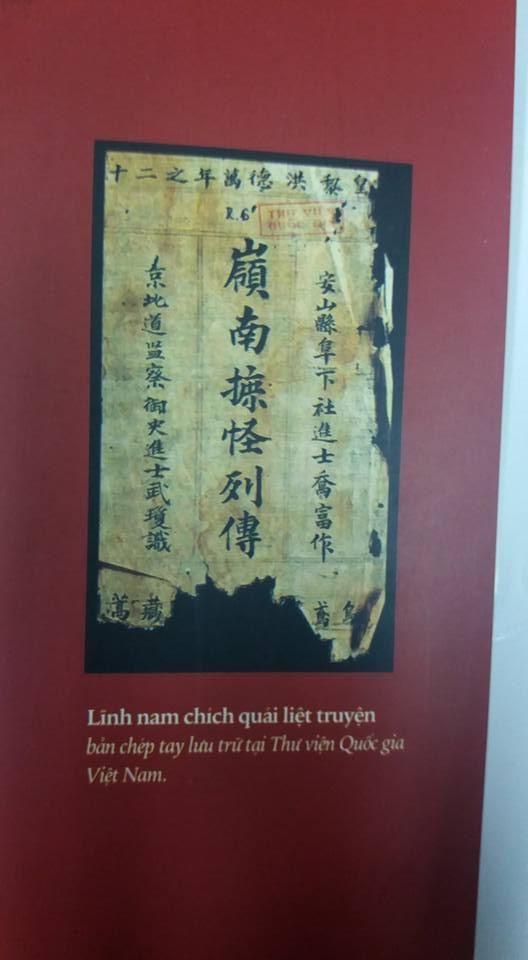 皇黎洪德萬年之二十
R.6
THƯ VI
QUỐC
安山縣阜下社進士喬富作
嶺南摭怪列傳
京北道监察御史進士武瓊識
藏
Lĩnh nam chích quái liệt truyện
bản chép tay lưu trữ tại Thư viện Quốc gia
Việt Nam.